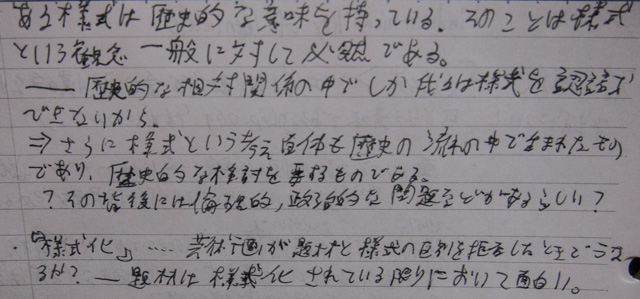 ある様式は歴史的な意味を持っている。そのことは様式
という観念一般に対して必然である。
―― 歴史的な相対関係の中でしか我々は様式を認識
できないから。
⇒ さらに様式という考え自体も歴史の流れの中で生まれたもの
であり、歴史的な検討を要するものである。
? その背後には倫理的、政治的な問題などがあるらしい?
・「様式化」‥‥ 芸術家が題材と様式の区別を拒否したときどうな
るか? ― 題材は様式化されている限りにおいて面白い。